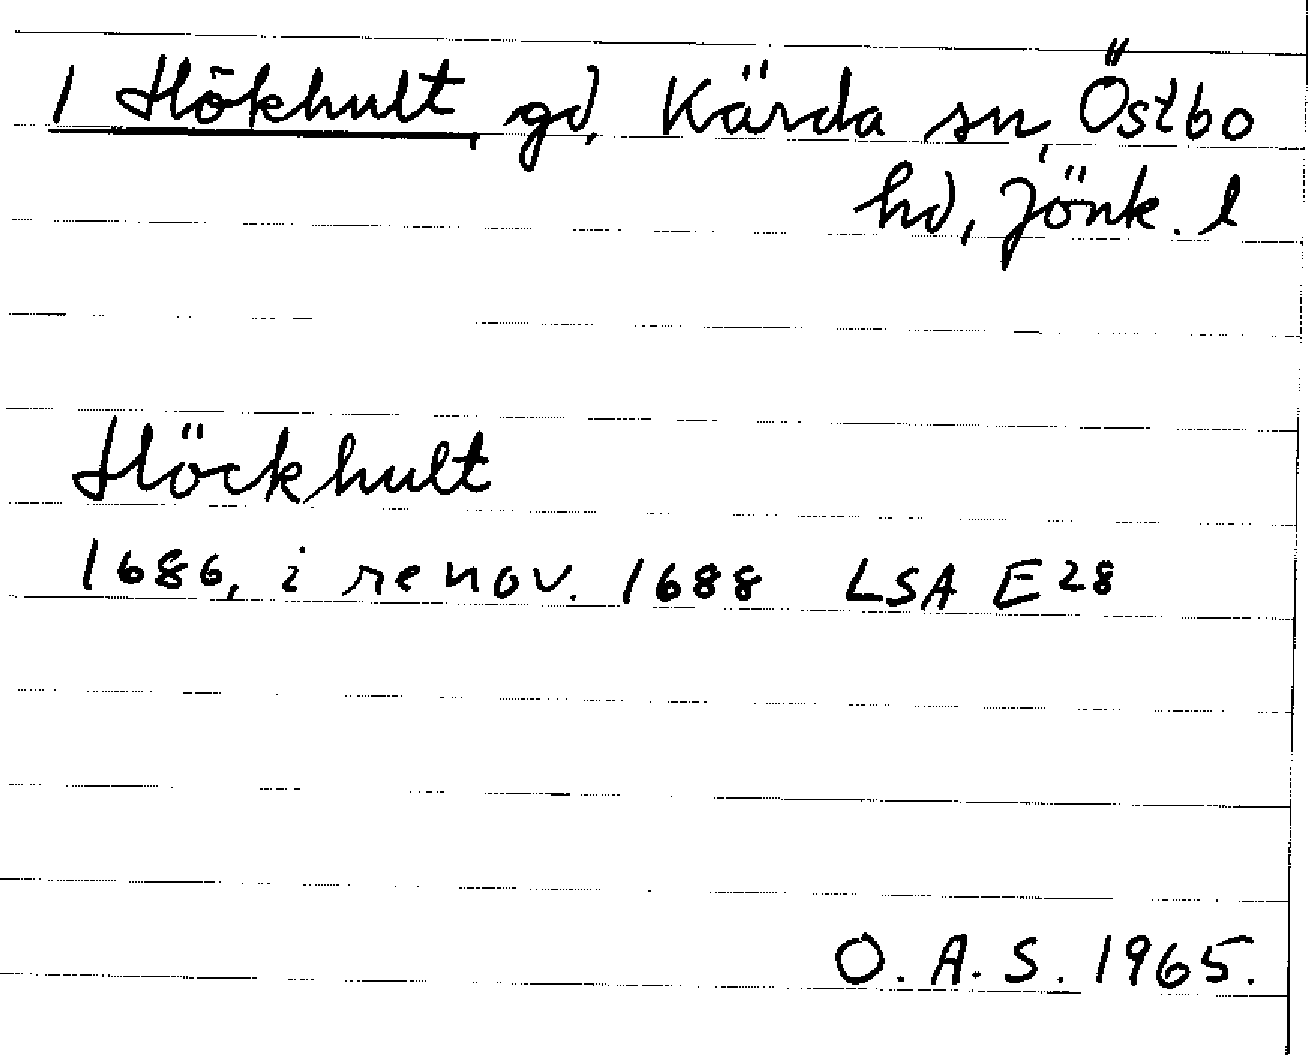 1 Hökhult, gd, Kärda sn, Östbo
hd, Jönk. l
Höckhult
1686, i renov. 1688 LSA E28
O. A. S. 1965.